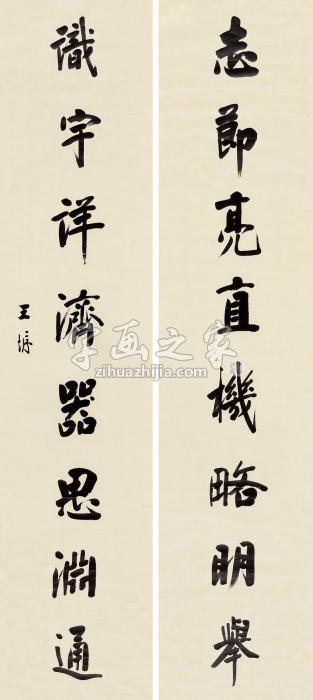 志節亮直機略明舉
識宇詳濟器思淵通
王垿
字画之家
zihuazhijia.com